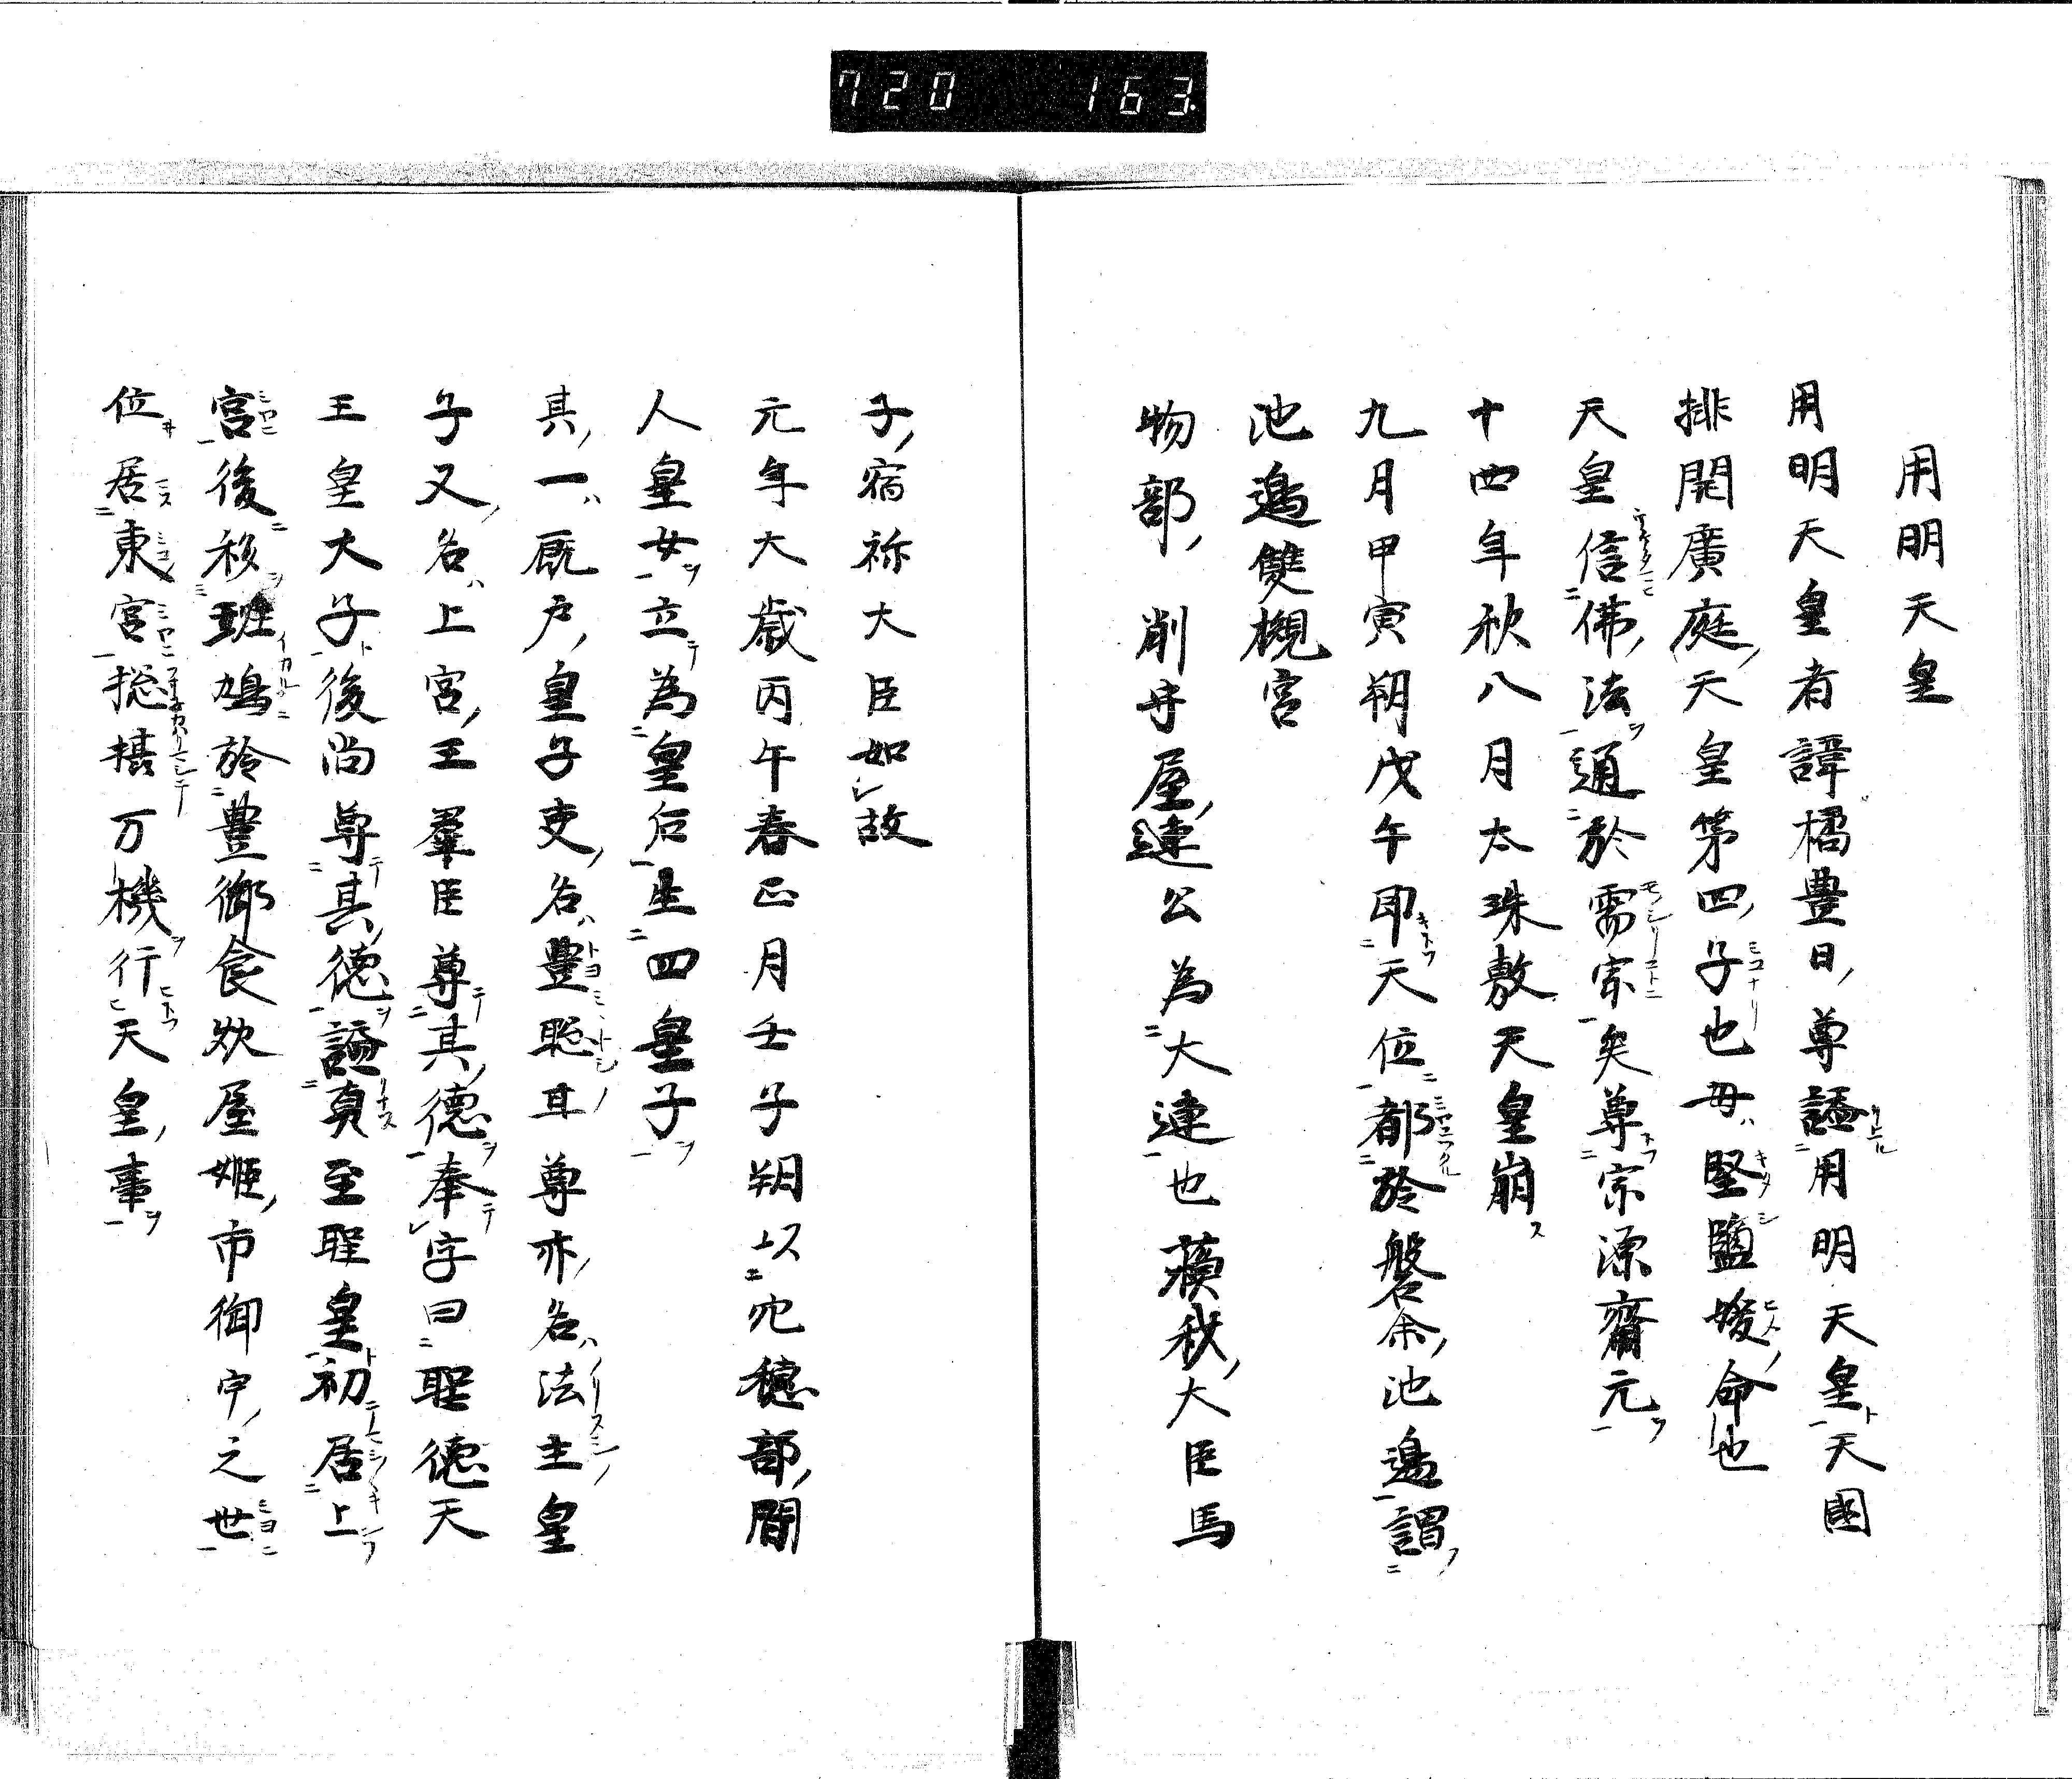 720 163.
用明天皇
用明天皇者諱橘豊日尊謚用明天皇天國
排開廣庭天皇第四子也母堅鹽媛命也
天皇信佛法通於需宗矣尊宗源齋元
十四年秋八月太珠敷天皇崩
九月甲寅朔戊午即天位都於磐余池邉謂
池邉雙槻宮
物部削守屋連公為大連也蘓我大臣馬
子宿祢大臣如故
元年大歳丙午春正月壬子朔以穴穂部間
人皇女立為皇后生四皇子
其一厩戸皇子吏名豊聡耳尊亦名法主皇
子又名上宮王羣臣尊其德奉字曰聖徳天
王皇大子後尚尊其徳謚真至聖皇初居上
宮後移斑鳩於豊御食炊屋姫帝御宇之世
位居東宮摠攝万機行天皇事